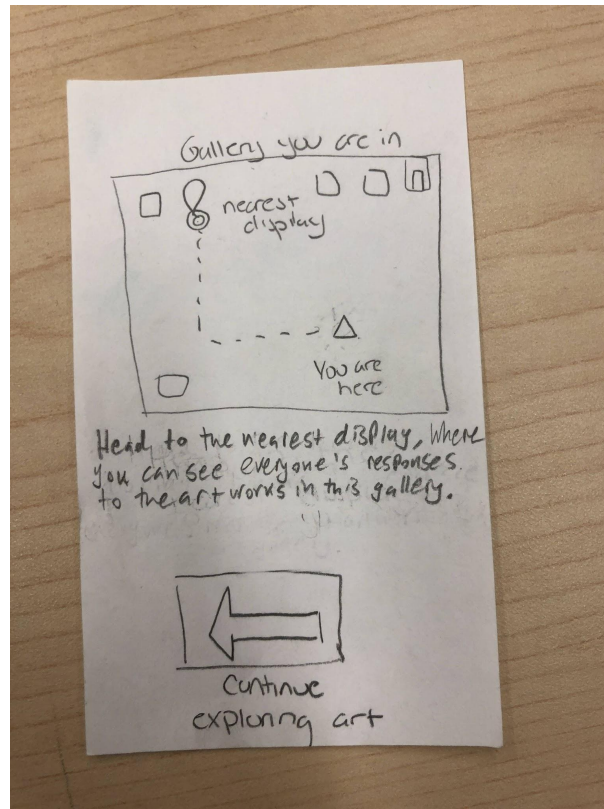 Gallery you are in
nearest
display
You are
here
Head to the nearest display, where
you can see everyone's responses
to the art works in this gallery.
Continue
exploring art